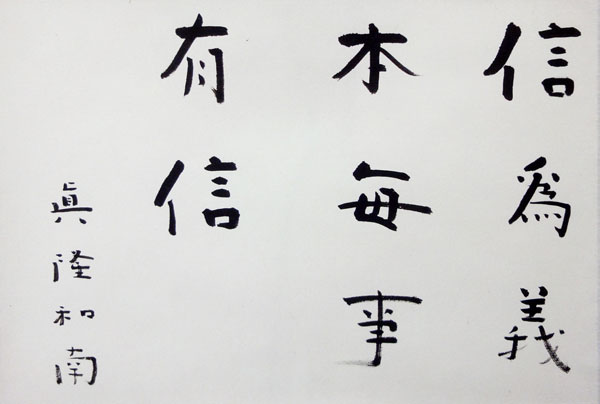 信為義
本每事
有信
眞隆和南